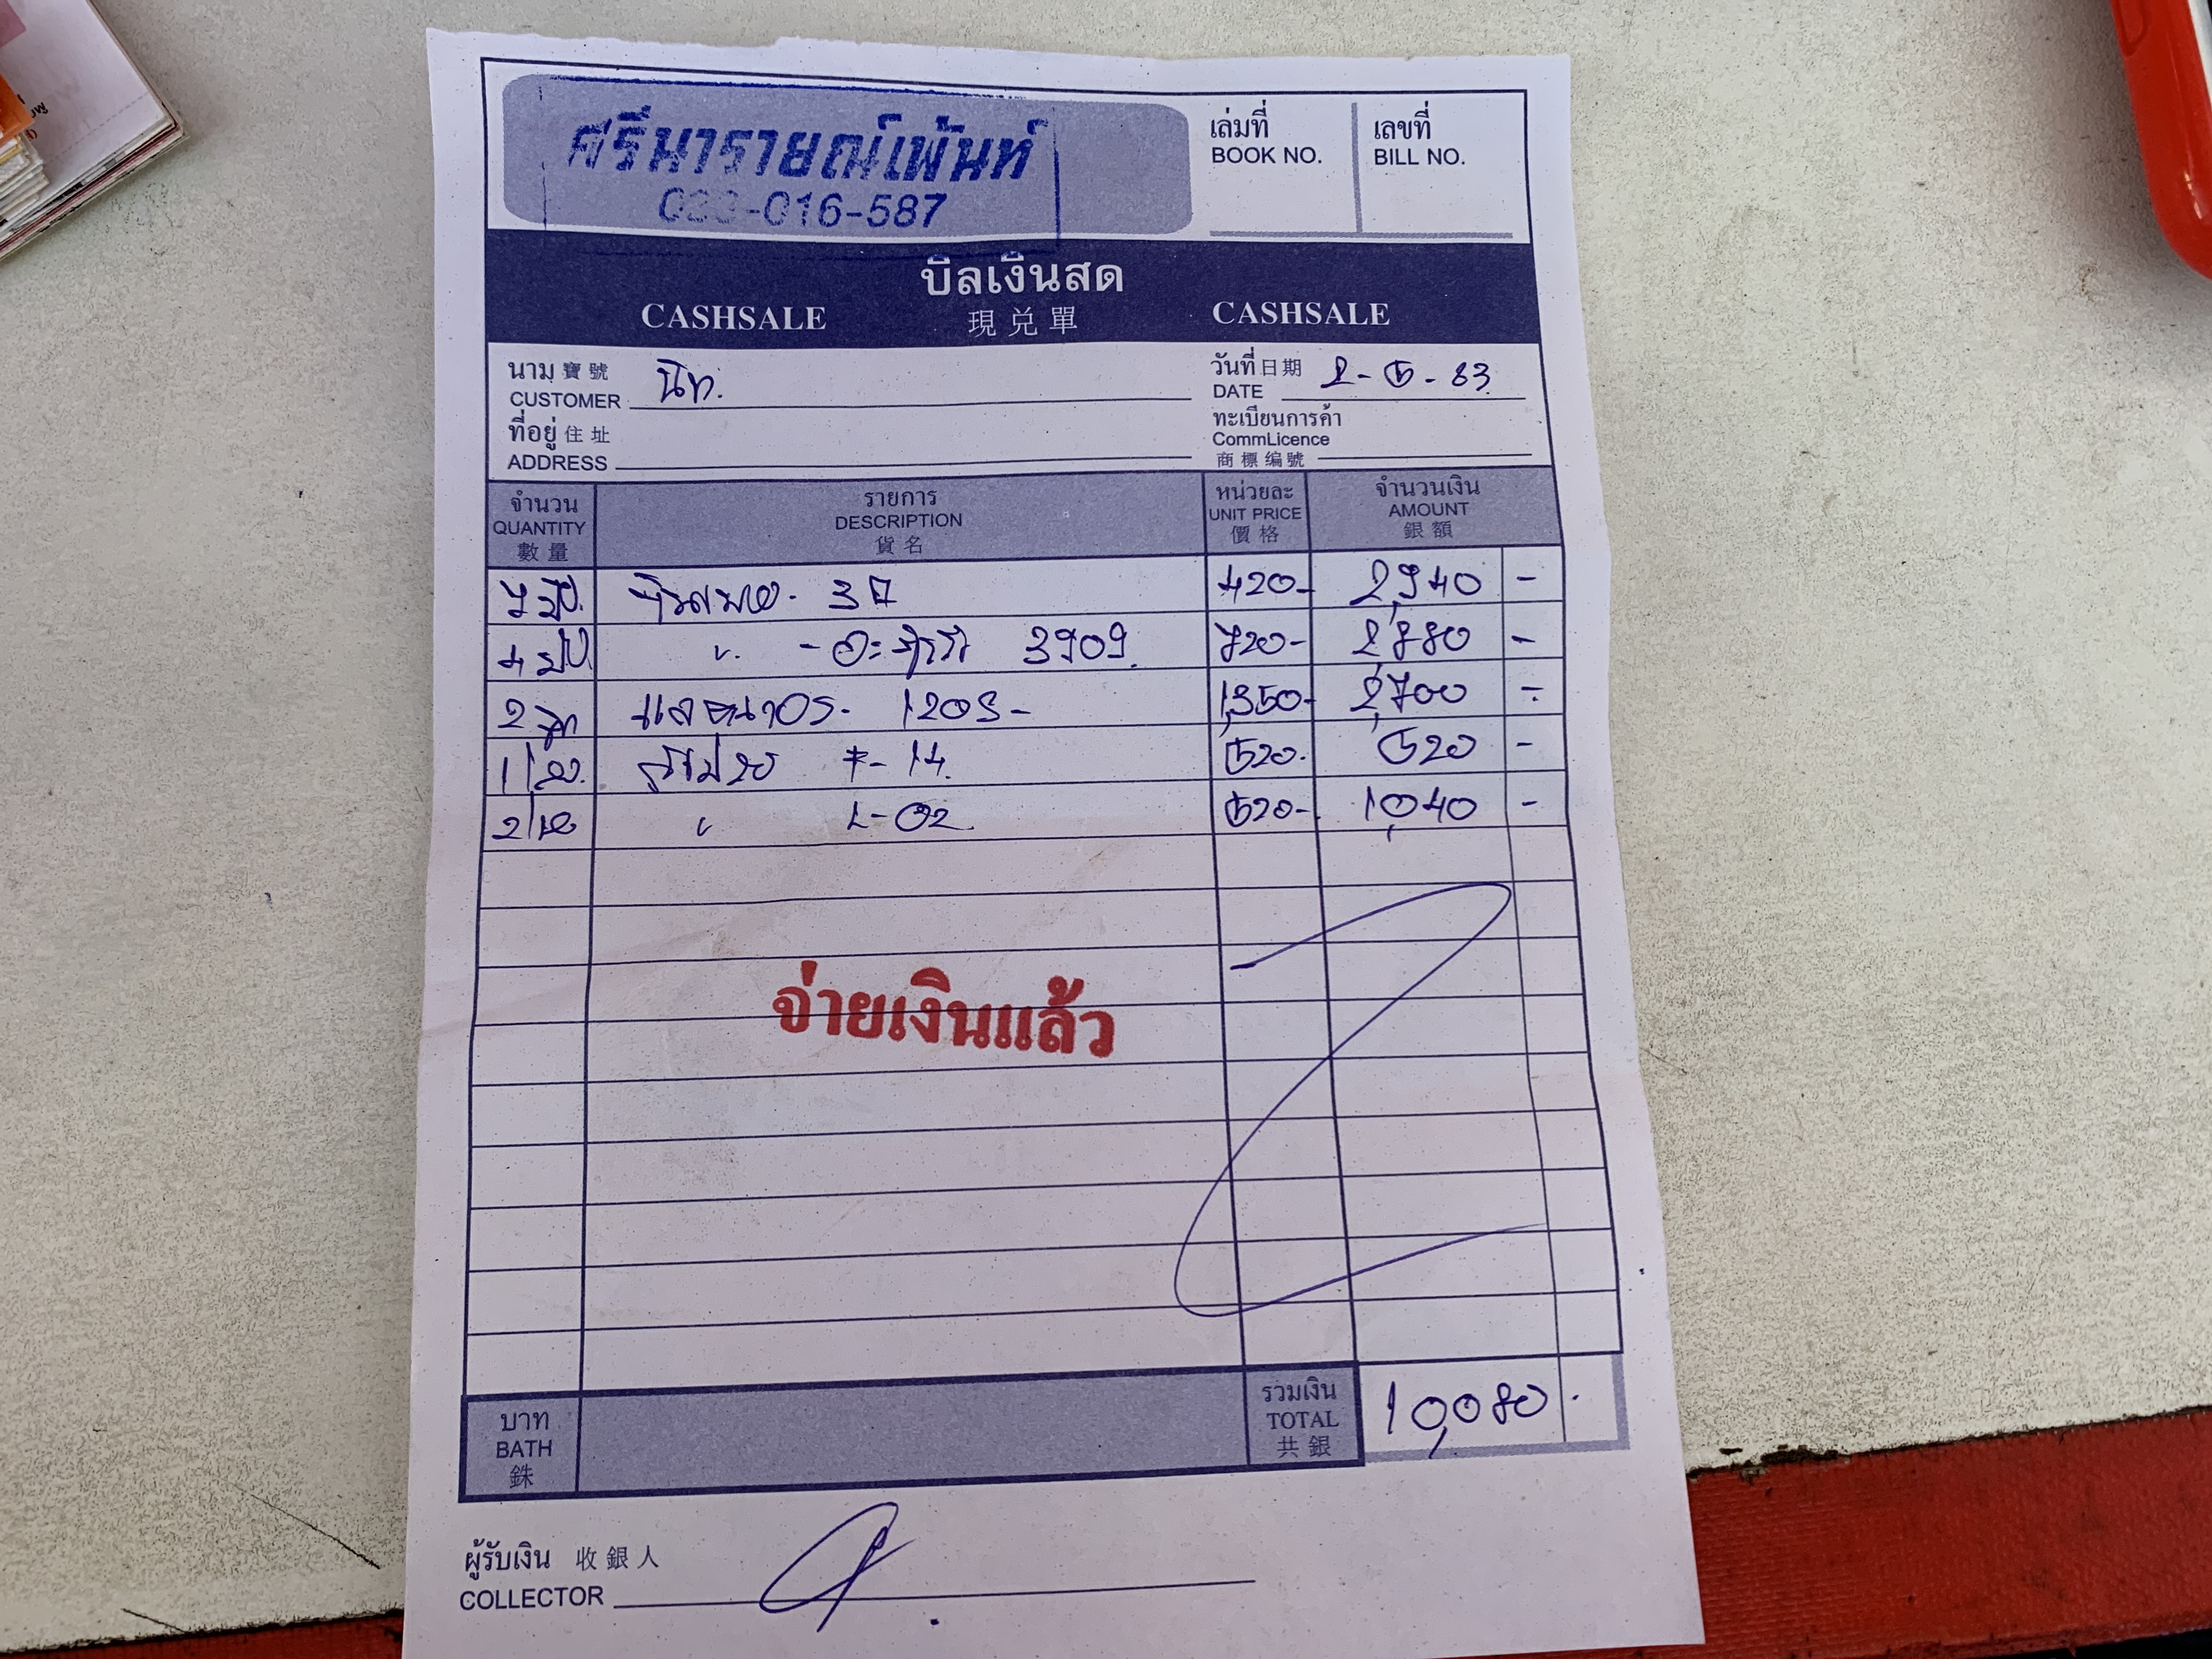 ศรีนารายณ์เพ้นท์
-016-587
เล่มที่
BOOK NO.
เลขที่
BILL NO.
บิลเงินสด
CASHSALE 現兑單 CASHSALE
นาม 寶號
CUSTOMER
วันที่ 日期
DATE 2-5-63
ที่อยู่ 住址
ADDRESS
ทะเบียนการค้า
CommLicence
商標编號
จำนวน
QUANTITY
數量
รายการ
DESCRIPTION
貨名
หน่วยละ
UNIT PRICE
價格
จำนวนเงิน
AMOUNT
銀額
420- 2,940 -
4 3909 720- 2,880 -
2 1,350- 2,700 -
1 14 520- 520 -
2 02 520- 1,040 -
จ่ายเงินแล้ว
บาท
BATH
銖
รวมเงิน
TOTAL
共銀
10,080
ผู้รับเงิน 收銀人
COLLECTOR